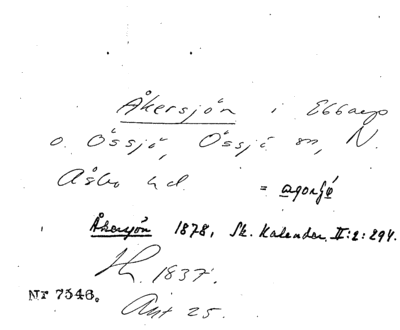 Åkersjön i Ebbarp
o. Össjö, Össjö sn, N.
Åsbo hd.
= agorsjö
Åkersjön 1878, Sk. Kalender, II:2:294.
H. 1837.
Nr 7546.
Ant 25.